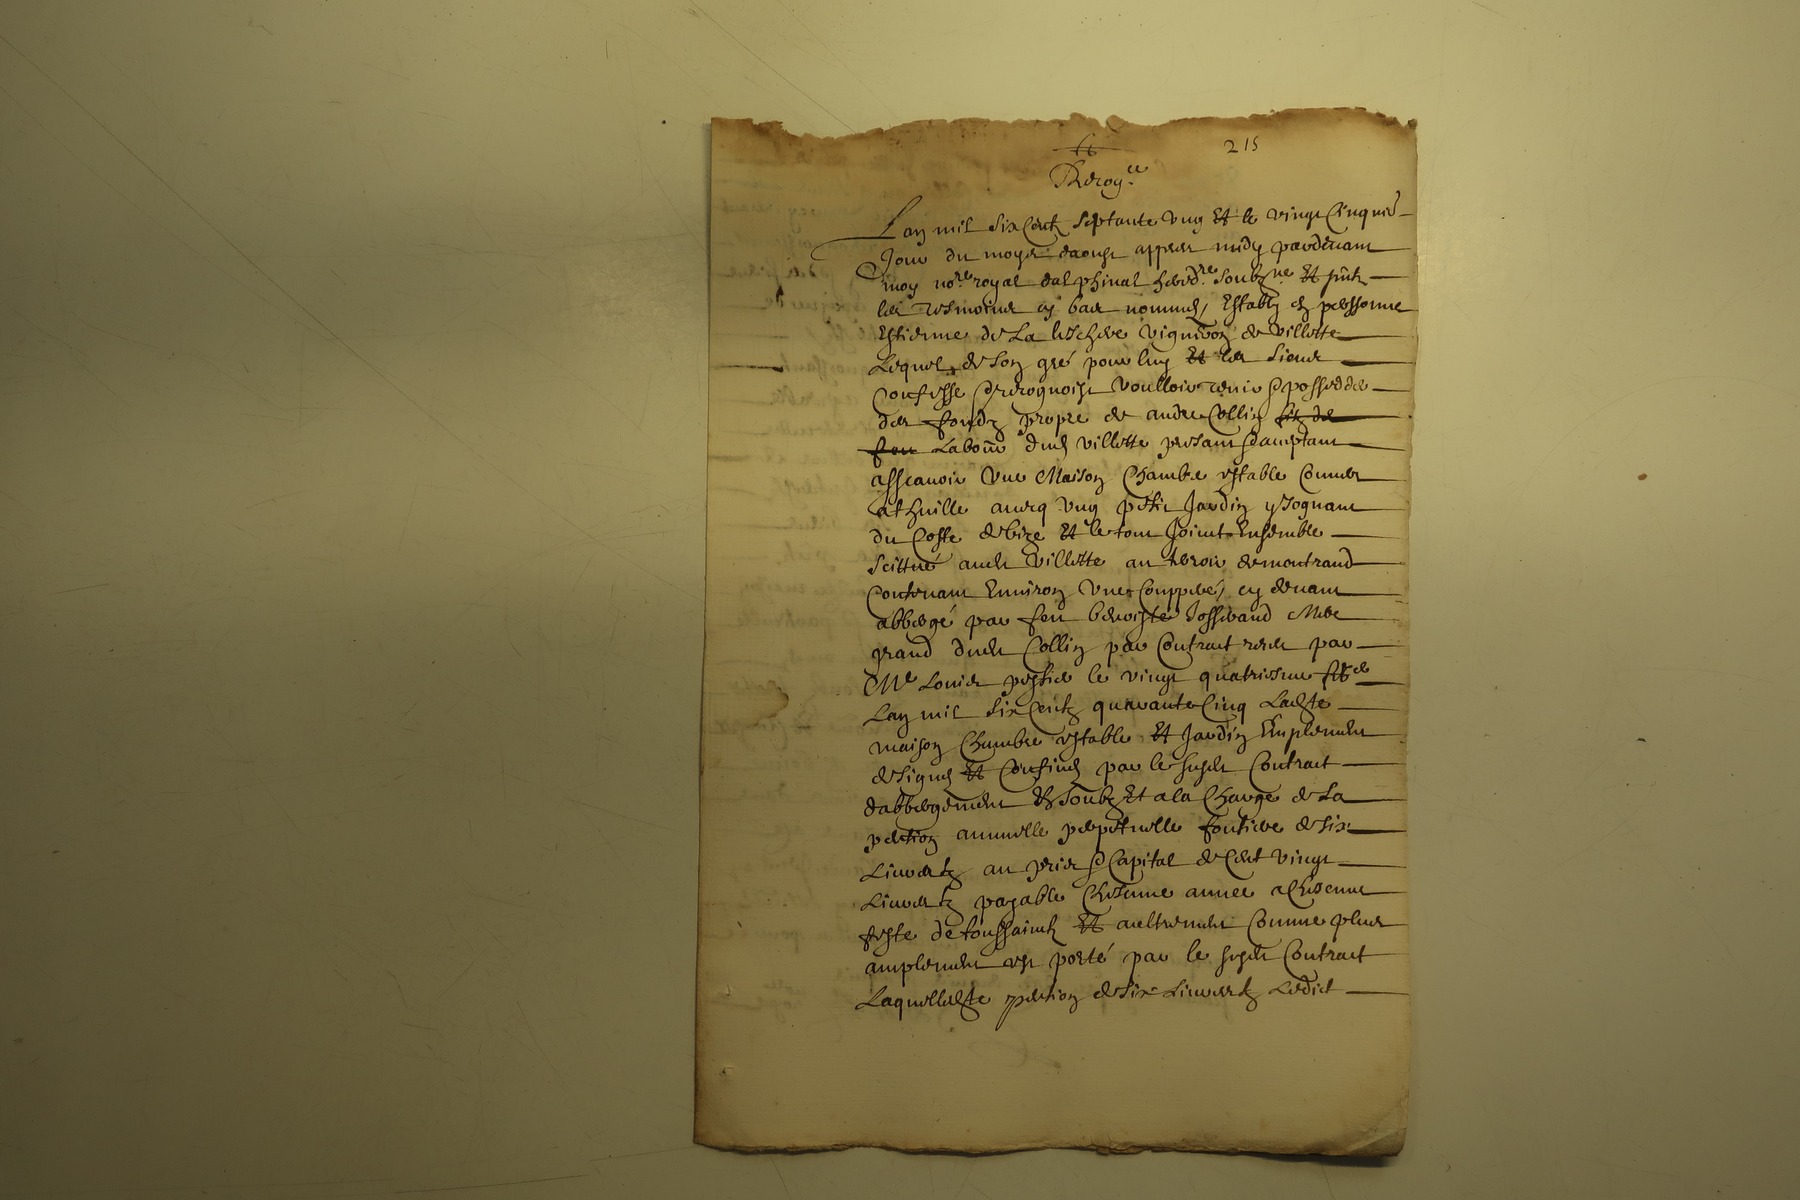 215
Recog.ce
Lan mil six centz septante vng Et le vingt cinquie
Jour du moys daoust appres midy pardeuant
moy no.re royal dalphinal hered.re soubz.ne Et pntz
les tesmoins cy bas nommes, Estably en personne
Estienne de La vigneron de villette
Lequel, de son gré pour luy Et les siens
Confesse Et recognoist voulloir tenir Et possedder
des fondz propre de andre Collin filz de
feu Labour dud villette presant Et acceptant
asscauoir vne Maison Chambre estable Couuers
athuille auecq vng petit Jardin y Joignant
du Coste de bize Et le tout Joint Ensemble
scittué audt villette au terroir de montrand
Contenant Enuiron vne Coupperé, cy deuant
abbergé par feu benoiste Josserand Mere
grand dudt Collin par Contract receu par
Me Louis le vingt quatriesme
Lan mil six centz quarante Cinq Ladte
maison Chambre estable Et Jardin Emplement
designes Et Confines par le susdt Contract
dabbergement Et soubz Et a la Charge de La
pention annuelle perpetuelle fontiere de six
Liuures au pris Et Capital de Cent vingt
Liuures payable Chesenne annee a Chesenne
feste de toussaintz Et aultrement Comme plus
amplement est porté par le susdt Contract
Laquelledte pention de six Liuures Ledict